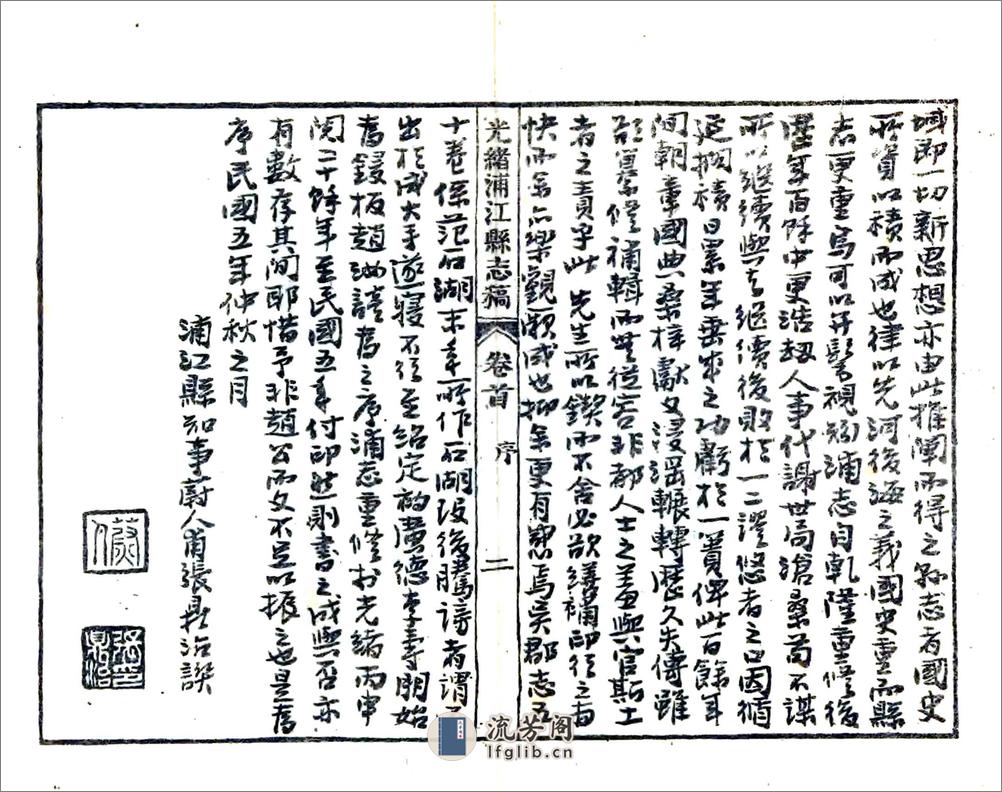 域即一切新思想亦由此推闡而得之縣志者國史
所資以積而成也律以先河後海之義國史重而縣
志更重焉可以弁髦視矧浦志自乾隆重修後
歷年百餘中更浩劫人事代謝世局滄桑苟不謀
所以繼續與夫繼續後敗於一二謬悠者之口因循
延擱積日累年垂成之功虧於一簣俾此百餘年
間朝章國典桑梓獻文浸淫輾轉歷久失傳雖
欲纂修補輯而無從容非都人士之羞與官斯土
者之責乎此先生所以鍥而不舍必欲續補印行之為
快而余亦樂觀厥成也抑余更有慨焉吳郡志五
光緒浦江縣志稿
卷首
序
二
十卷係范石湖末年所作石湖歿後騰謗者謂不
出於成大手遂寢不行至紹定初廣德李壽朋始
為鋟板趙汝談為之序浦志重修於光緒丙申
閱二十餘年至民國五年付印然則書之成與否亦
有數存其間耶惜予非趙公而文不足以振之也是為
序民國五年仲秋之月
浦江縣知事蔚人甫張鼎治譔
張鼎治
流芳阁
lfglib.cn